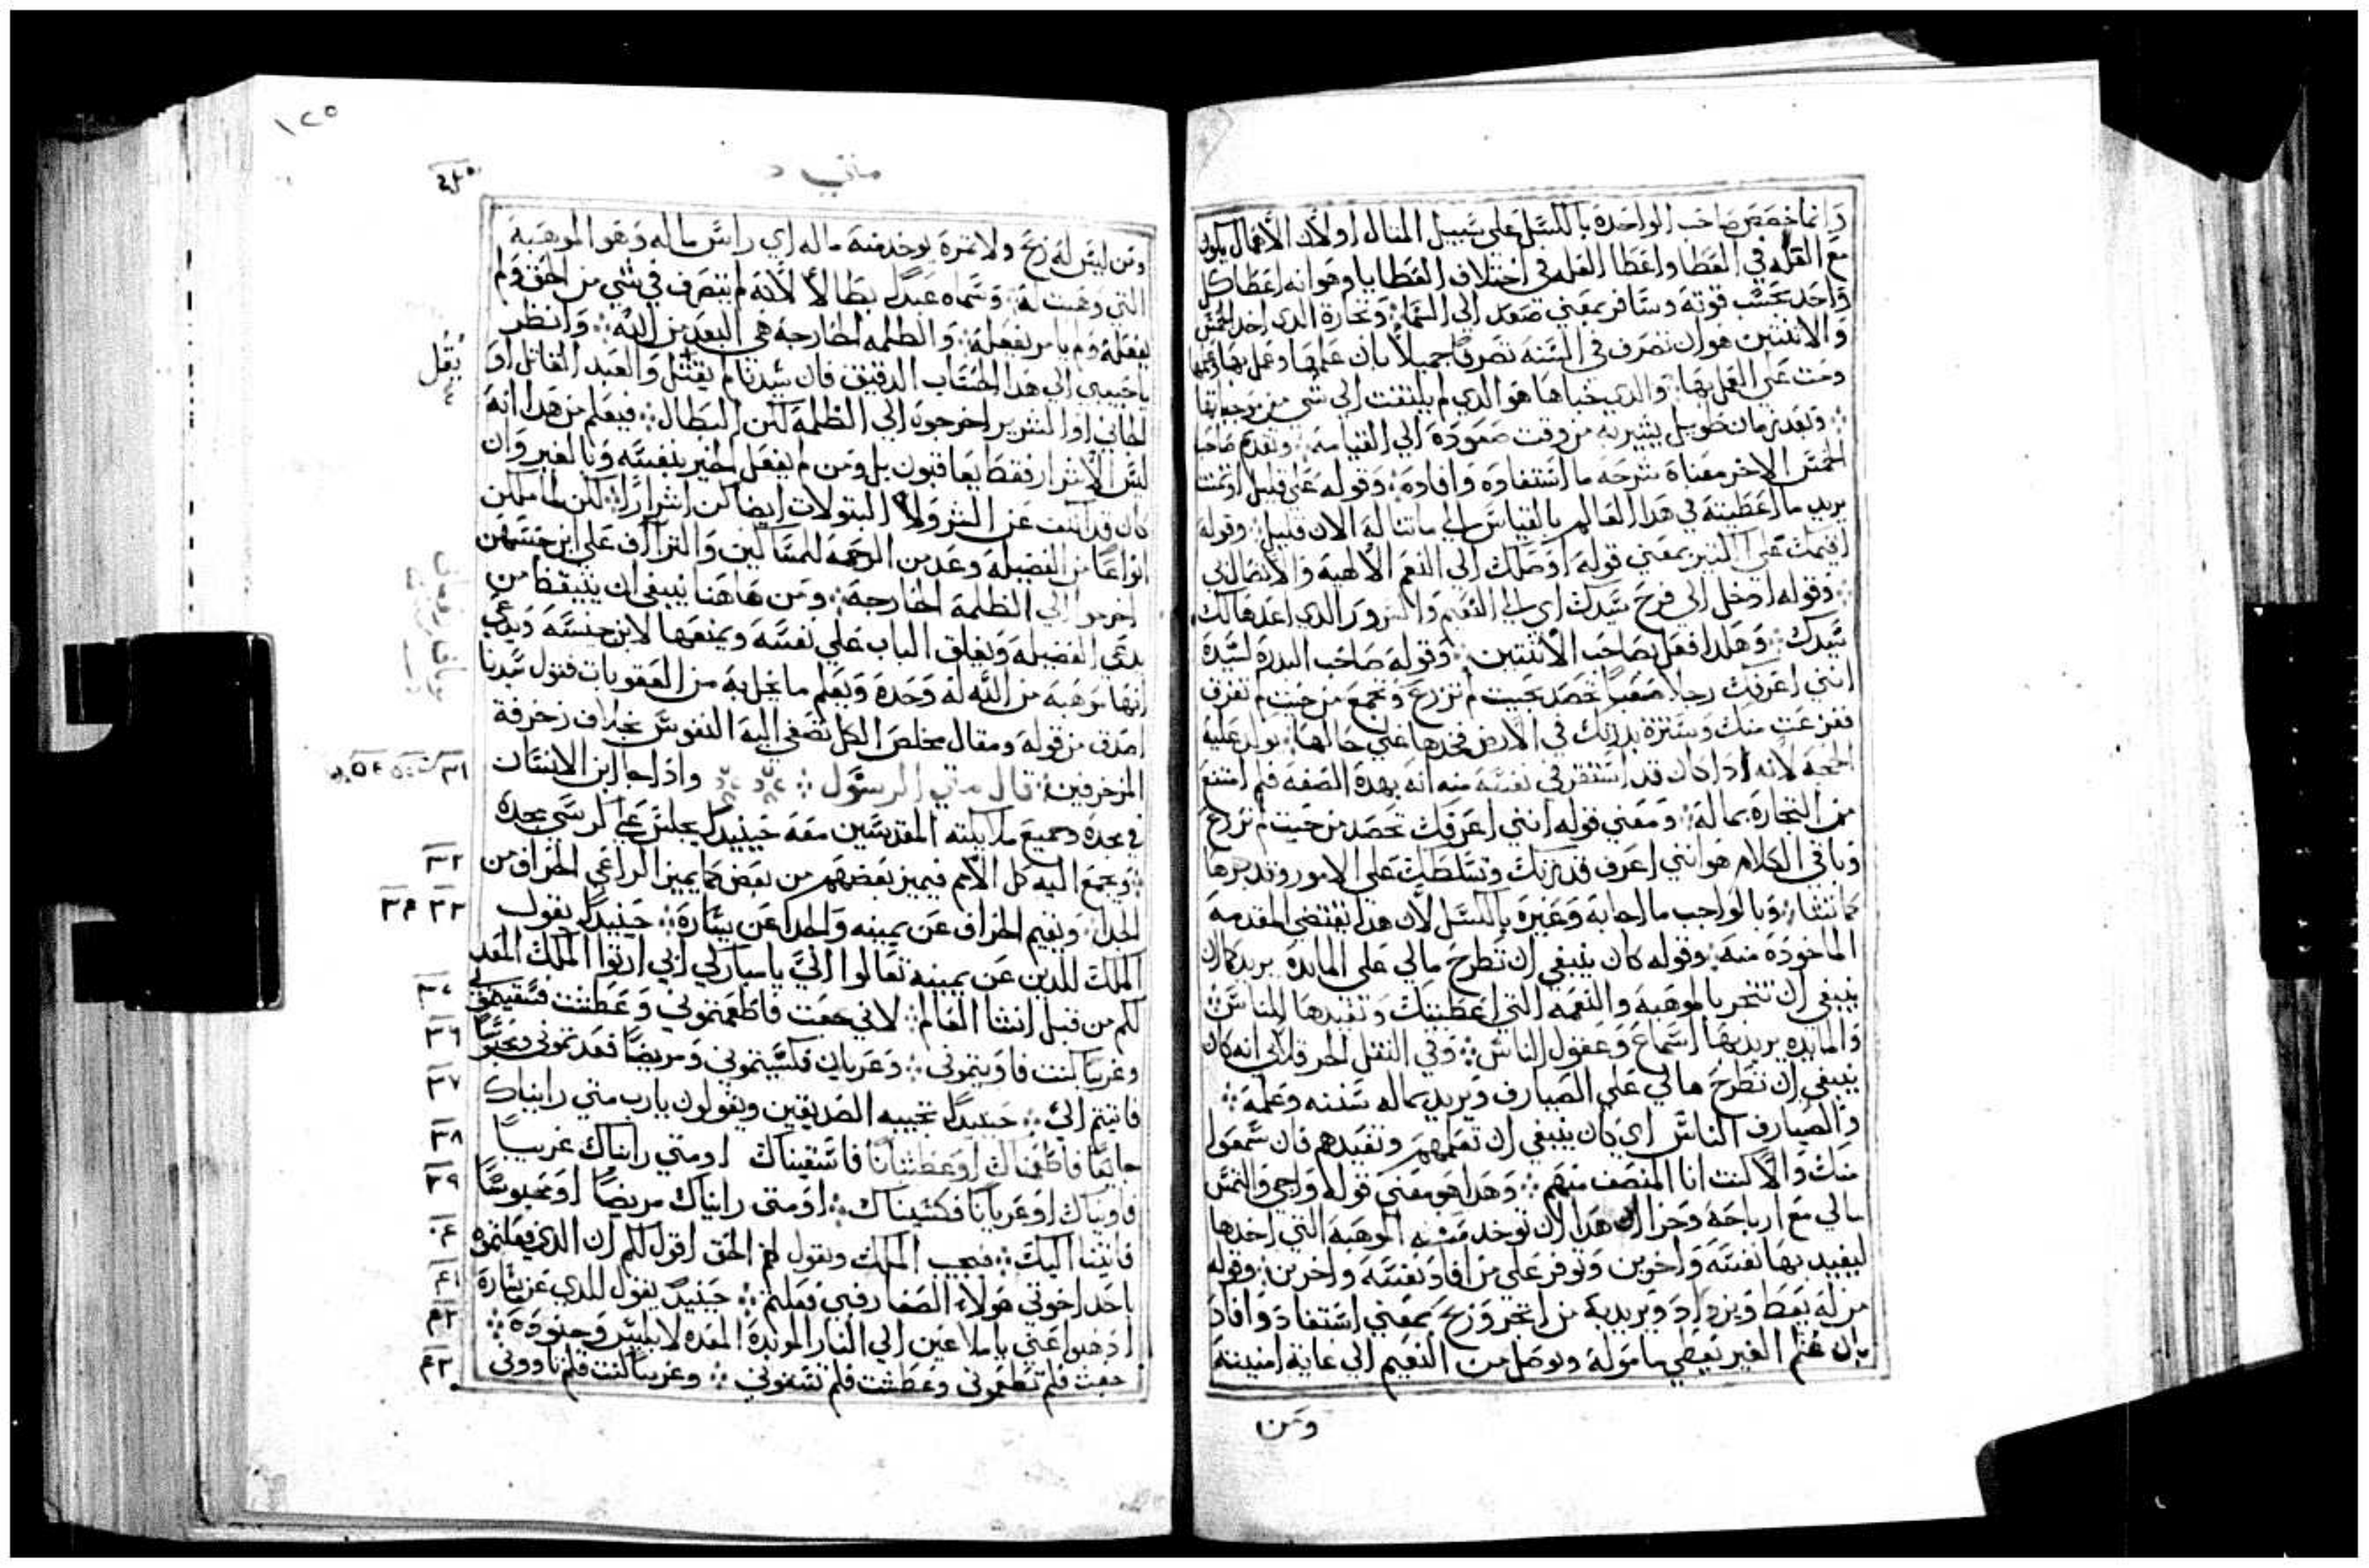 وانما خصص صاحب الواحدة بالكسل على سبيل المثال اولأن الأهمال يكون
مع القلة في العطا واعطا العله في اختلاف العطايا وهو انه اعطا كل
واحد بحسب قوته وسافر بمعني صعد الي السما وتجارة الدي اخد الخمس
والاتنتين هو ان تصرف في السنه تصرفاً جميلاً بان علم بها وعمل بها
وحت علي العمل بها والدي خباها هو الدي لم يلتفت الي شي من
وبعد زمان طويل يشير به من وقت صعوده الي القيامه وتقدم صاحب
الخمس الاخر معناه شرحه ما استفاده وافاده وقوله علي قليل اوتمنت
يريد ما اعطيته في هدا العالم بالقياس الي ما تناله الان قليل وقوله
اقيمك علي الكتير بمعني قوله اوصلك الي النعم الالهيه والاتصال بي
وقوله ادخل الي فرح سيدك اي الي النعيم والسرور الدي اعدها لك
سيدك وهكدا فعل بصاحب الاتنتين وقوله صاحب البدرة لسيدة
انني اعرفك رجلاً صعباً تحصد بحيت لم تزرع وتجمع من حيت لم تفرق
ففزعت منك وسترة بدرتك في الارض فخدها علي حالها توكد عليه
الحجه لانه ادا كان قد استقر في نفسه منه انه بهدة الصفه فلم امتنع
من التجارة بماله ومعني قوله انني اعرفك تحصد من حيت لم تزرع
وباقي الكلام هو انني اعرف قدرتك وتسلطك علي الامور وتدبرها
كما تشا وبالواجب ما اجابه وعيره بالكسل لأن هدا تقتضي المقدمه
الماخودة منه وقوله كان ينبغي ان تطرح مالي علي المايدة يريد كان
ينبغي ان تتجر بالموهبه والنعمه التي اعطيتك وتفيدها للناس
والمايدة يريد بها اسماع وعقول الناس وفي النقل الاخر قال انه كان
ينبغي ان تطرح مالي علي الصيارف ويريد بماله سننه وعلمه
والصيارف الناس اي كان ينبغي ان تعلمهم وتفيدهم فان سمعوا
منك والا كنت انا المنتصف منهم وهدا هو معني قوله واجي والتمس
مالي مع ارباحه وجزا هدا ان توخد منه الموهبة التي اخدها
ليفيد بها نفسه واخرين وتوفر علي من افاد نفسه واخرين وقوله
من له يعط ويزداد ويريد به من اتجر وربح بمعني استفاد وافاد
بان غنم الغير يعطي ما موله ويوصل من النعيم الي غاية امنيته
ومن
١٢٥
متي
ومن ليس له ربح ولا تمرة يوخد منه ماله اي راس ماله وهو الموهبة
التي وهبت له وسماه عبداً بطالاً لأنه لم يتصرف في شي من الحق ولم
يفعله ولم يامر بفعله والظلمه الخارجة هي البعد من الله وانظر
يا حبيبي الي هدا الحساب الدقيق فان سيدنا لم يقتل والعبد القاتل او
يقل
الجاني او الشرير اخرجوه الي الظلمة لكن البطال فيعلم من هدا انه
ليس الاشرار فقط يعاقبون بل ومن لم يفعل الخير بنفسه وبالغير وان
كان قد كف عن الشر ولا البتولات ايضا كن اشراراً لكن لما ملكن
انواعاً من الفضيلة وعدمن الرحمه للمساكين والتراأف علي ابن جنسهن
اخرجوا الي الظلمة الخارجة ومن هاهنا ينبغي ان يتيقظ من
يدعي الفضيلة ويغلق الباب علي نفسه ويمنعها لابن جنسه ويدعي
انها موهبه من الله له وحدة ويعلم ما يحل به من العقوبات فقول سيدنا
اصدق من قوله ومقال مخلص الكل تصغي اليه النفوس بخلاف زخرفة
المزخرفين قال متي الرسول وادا جا ابن الانسان
٣١
في مجدة وجميع ملايكته المقدسين معه حينيدٍ يجلس علي كرسي مجدة
وتجمع اليه كل الأمم فيميز بعضهم من بعض كما يميز الراعي الخراف من
٣٢
الجدا ويقيم الخراف عن يمينه والجدا عن يسارة حينيدٍ يقول
٣٣ ٣٤
الملك للدين عن يمينه تعالوا اليَّ يا مباركي ابي ارتوا الملك المعد
لكم من قبل انشا العالم لاني جعت فاطعمتموني وعطشت فسقيتموني
٣٥
وغريباً كنت فاويتموني وعريان فكسيتموني ومريضاً فعدتموني ومحبوساً
٣٦
فاتيتم الي حينيدٍ تجيبه الصديقين ويقولون يارب متي رايناك
٣٧
جايعاً فاطعمناك او عطشاناً فاسقيناك اومتي رايناك غريباً
٣٨
فاويناك او عرياناً فكسيناك اومتي رايناك مريضاً او محبوساً
٣٩
فاتينا اليك فيجيب الملك ويقول لهم الحق اقول لكم ان الدي فعلتموه
٤٠
باحد اخوتي هولاء الصغار فبي فعلتم حينيدٍ يقول للدي عن يسارة
٤١
ادهبوا عني يا ملاعين الي النار الموبدة المعده لابليس وجنوده
٤٢
جعت فلم تطعموني وعطشت فلم تسقوني وغريباً كنت فلم تاووني
٤٣